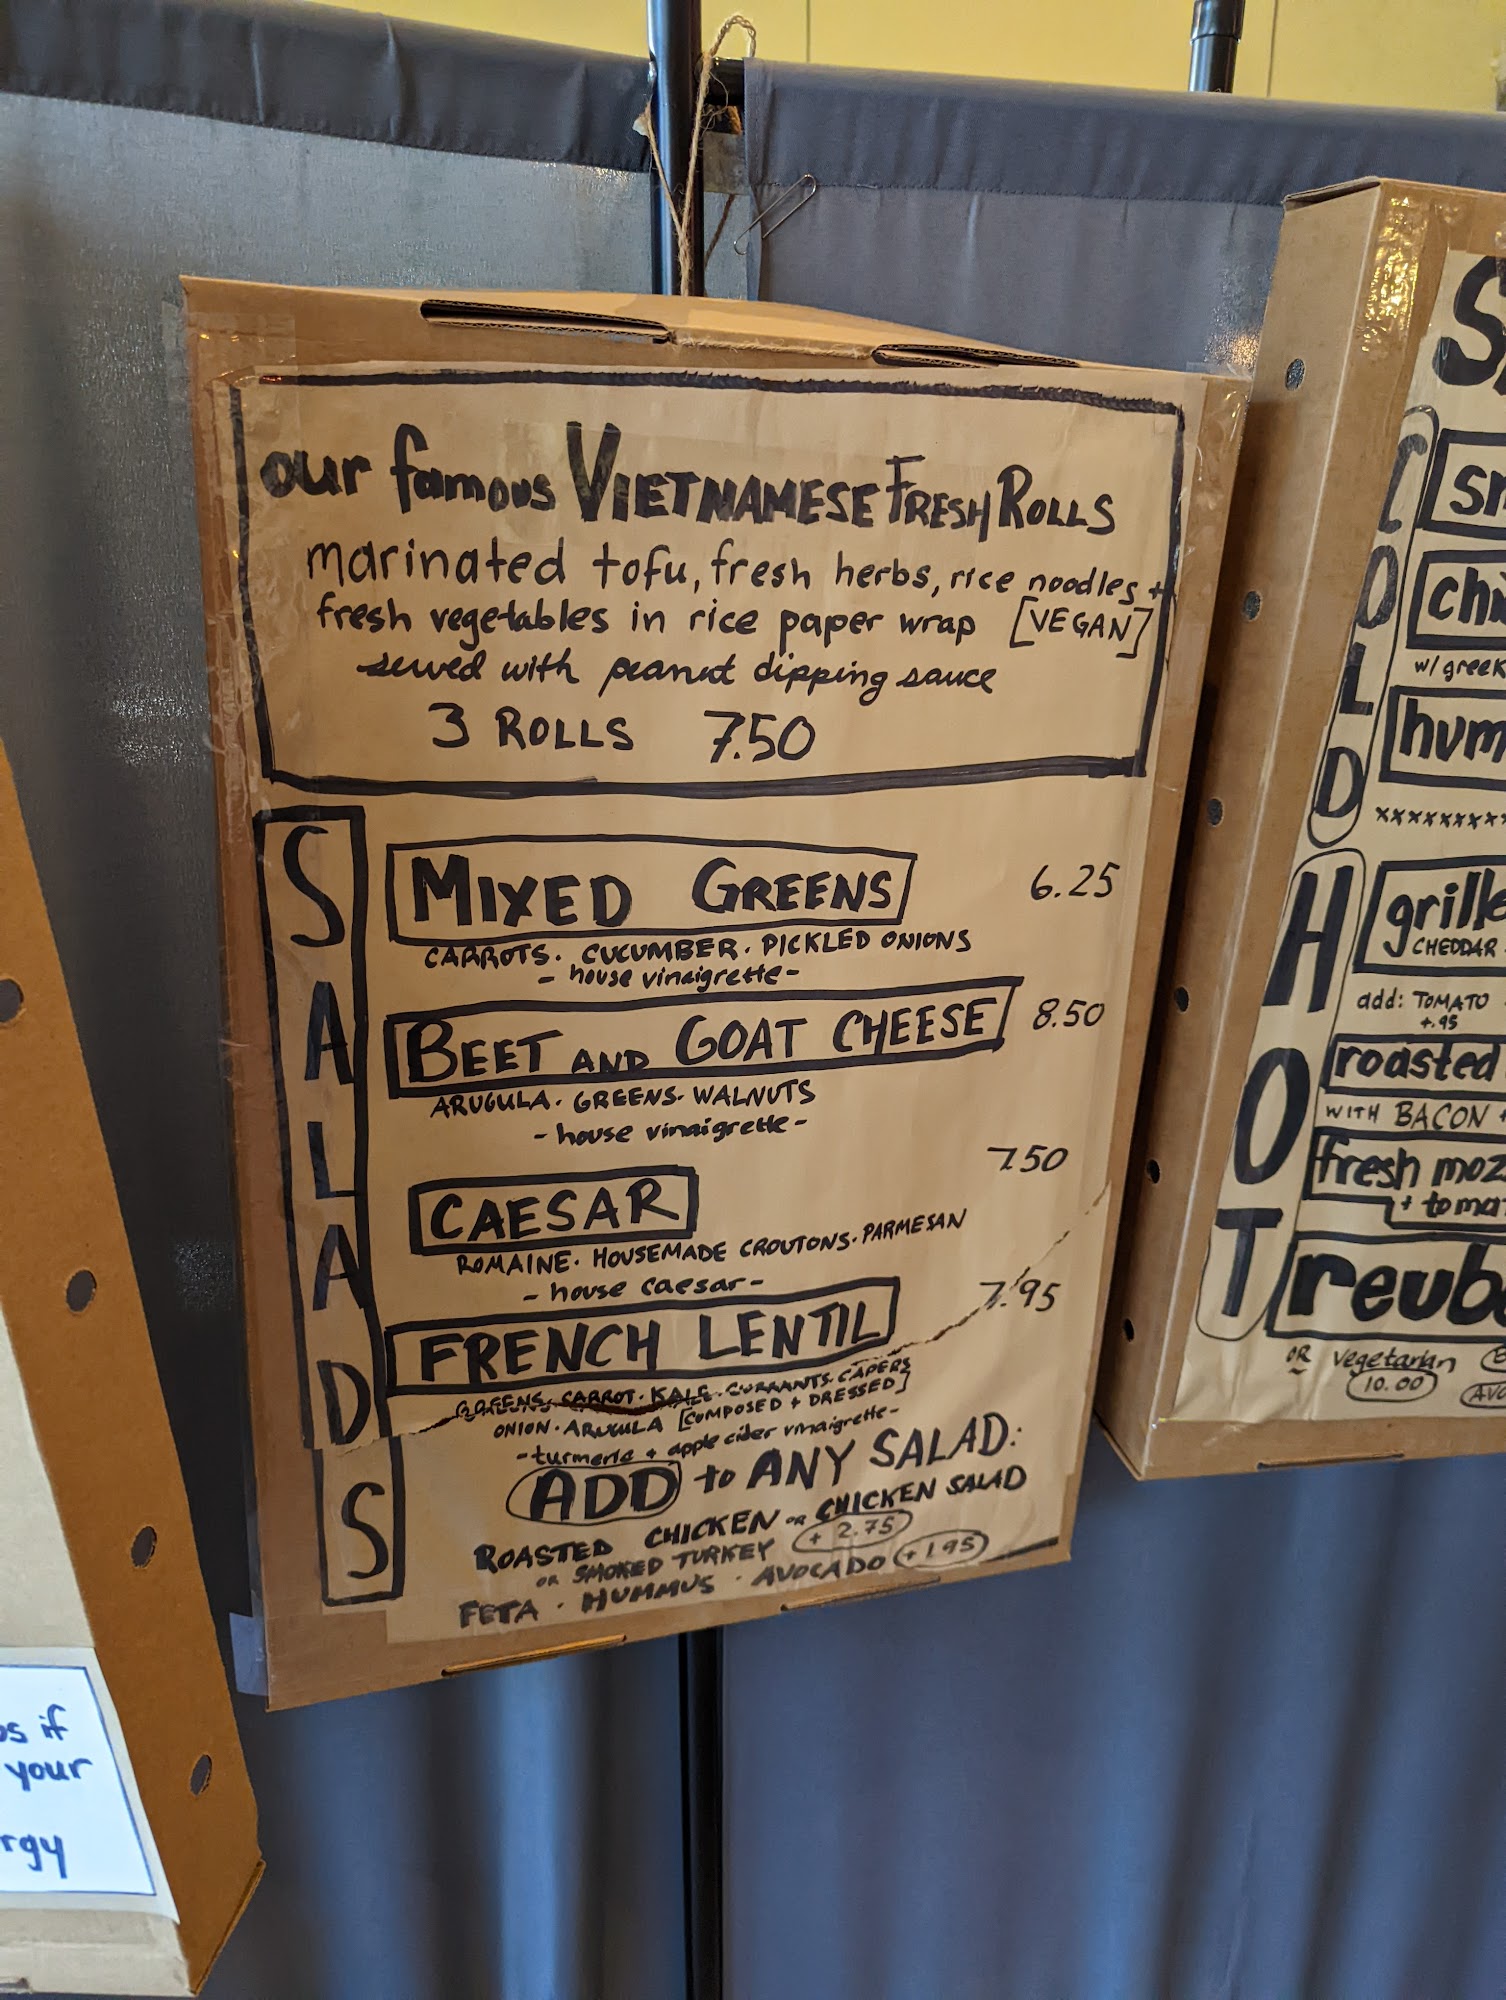 our famous VIETNAMESE FRESH ROLLS
marinated tofu, fresh herbs, rice noodles +
fresh vegetables in rice paper wrap [VEGAN]
served with peanut dipping sauce
3 ROLLS 7.50
SALADS
MIXED GREENS 6.25
CARROTS · CUCUMBER · PICKLED ONIONS
- house vinaigrette -
BEET AND GOAT CHEESE 8.50
ARUGULA · GREENS · WALNUTS
- house vinaigrette -
CAESAR 7.50
ROMAINE · HOUSEMADE CROUTONS · PARMESAN
- house caesar -
FRENCH LENTIL 7.95
GREENS · CARROT · KALE · CURRANTS · CAPERS
ONION · ARUGULA [COMPOSED + DRESSED]
- turmeric + apple cider vinaigrette -
ADD to ANY SALAD:
ROASTED CHICKEN OR CHICKEN SALAD
OR SMOKED TURKEY + 2.75
FETA · HUMMUS · AVOCADO + 1.95
COLD
w/ greek
HOT
CHEDDAR
add: TOMATO
+.95
roasted
WITH BACON +
fresh
+
OR vegetarian
10.00
if
your